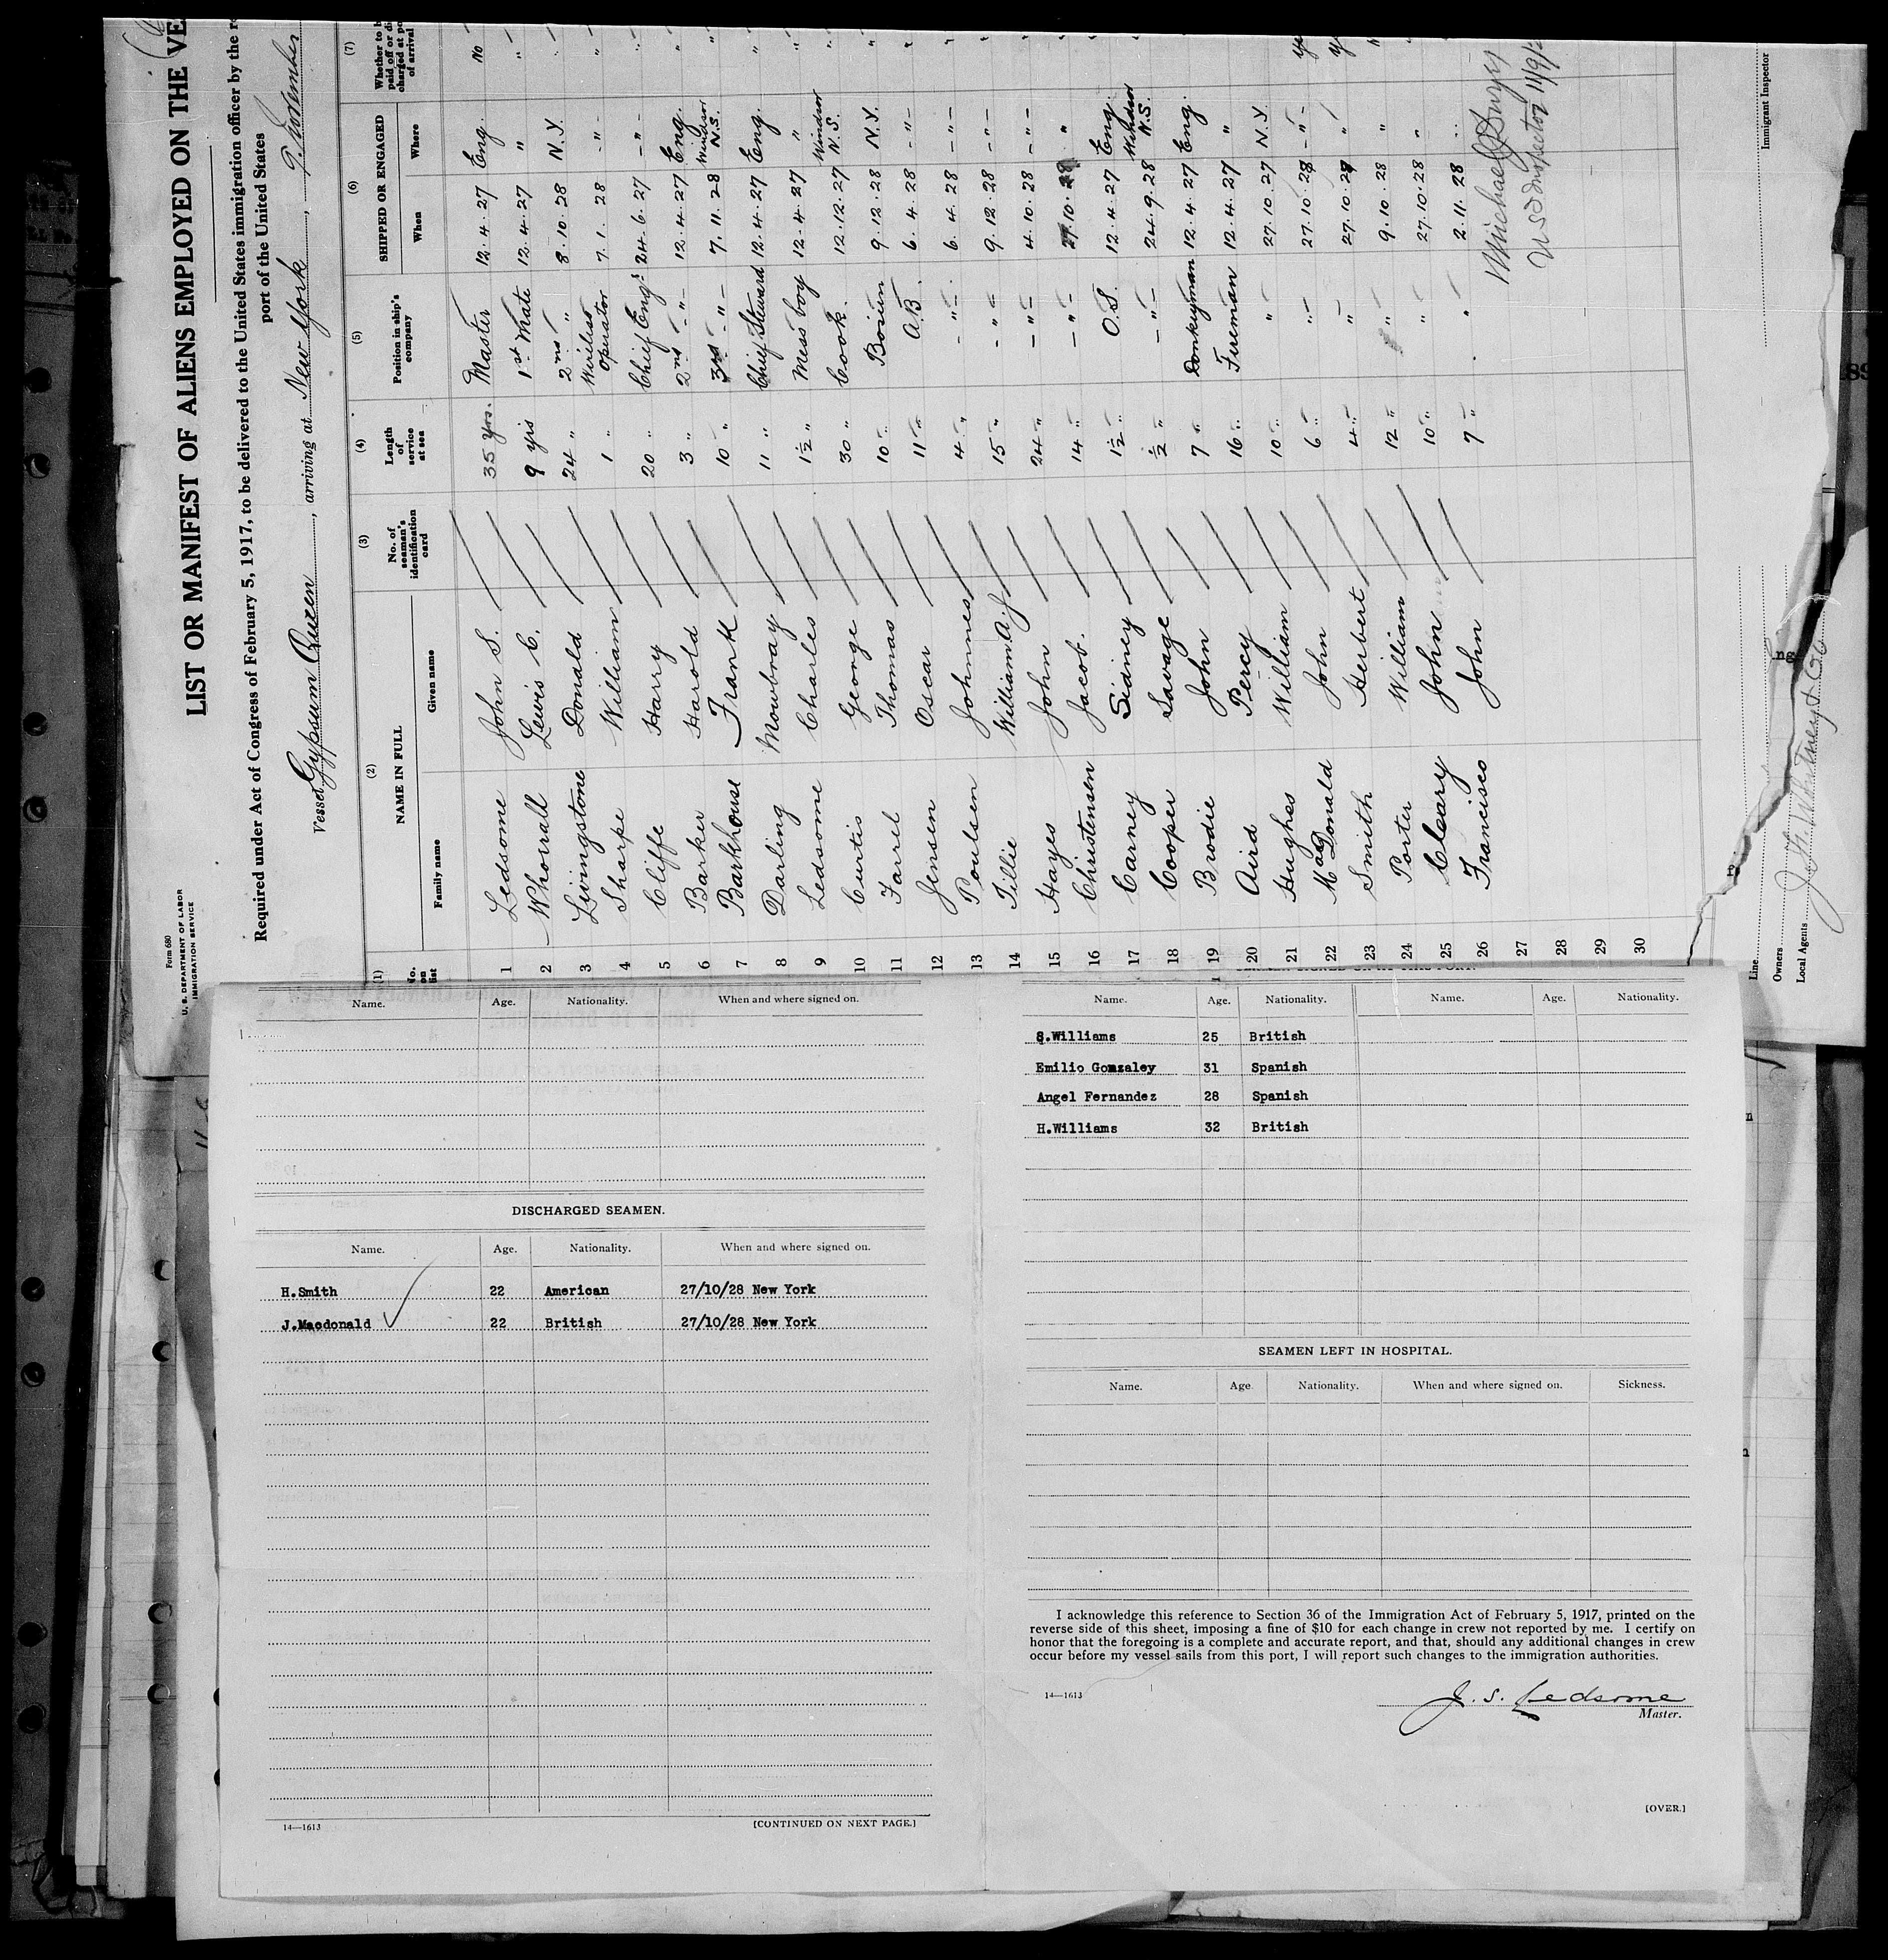 Form 680
U. S. DEPARTMENT OF LABOR
IMMIGRATION SERVICE
LIST OR MANIFEST OF ALIENS EMPLOYED ON THE VE
Required under Act of Congress of February 5, 1917, to be delivered to the United States immigration officer by the r
port of the United States
Vessel Gypsum Queen, arriving at New York, 9. November
(1) (2) (3) (4) (5) (6) (7)
No. on list NAME IN FULL No. of seaman's identification card Length of service at sea Position in ship's company SHIPPED OR ENGAGED Whether to b paid off or di charged at po of arrival
Family name Given name When Where
1 Ledsome John S. 35 yrs. Master 12.4.27 Eng. no
2 Whorrall Lewis C. 9 yrs 1st Mate 12.4.27 "
3 Livingstone Donald 24 " 2nd " 8.10.28 N.Y.
4 Sharpe William 1 " Wireless operator 7.1.28 - " -
5 Cliffe Harry 20 " Chief Engr 24.6.27 - " -
6 Barker Harold 3 " 2nd - " - 12.4.27 Eng.
7 Barkhouse Frank 10 " 3rd - " - 7.11.28 Windsor N.S.
8 Darling Mowbray 11 " Chief Steward 12.4.27 Eng.
9 Ledsome Charles 1½ " Mess boy 12.4.27 "
10 Curtis George 30 " Cook. 12.12.27 Windsor N.S.
11 Farrel Thomas 10 " Bosun 9.12.28 N.Y.
12 Jensen Oscar 11 " A.B. 6.4.28 - " -
13 Poulsen Johnnes 4 " - " - 6.4.28 - " -
14 Tillie William A. J. 15 " - " - 9.12.28 - " -
15 Hayes John 24 " - " - 4.10.28 - " -
16 Christensen Jacob. 14 " - " - 27.10.28 "
17 Carney Sidney 1½ " O.S. 12.4.27 Eng.
18 Cooper Savage ½ " - " - 24.9.28 Windsor N.S.
19 Brodie John 7 " Donkeyman 12.4.27 Eng.
20 Aird Percy 16 " Fireman 12.4.27 "
21 Hughes William 10 " " 27.10.27 N.Y.
22 MacDonald John 6 " " - 27.10.28 - " -
23 Smith Herbert 4 " " 27.10.28 "
24 Porter William 12 " " 9.10.28 "
25 Cleary John 10 " " 27.10.28 "
26 Francisco John 7 " " 2.11.28 "
27
28
29
30
Michael
US Inspector 11/9/
Immigrant Inspector
Line
Owners
Local Agents J. F. Whitney & Co
Name. Age. Nationality. When and where signed on.
DISCHARGED SEAMEN.
Name. Age. Nationality. When and where signed on.
H.Smith 22 American 27/10/28 New York
J.Macdonald 22 British 27/10/28 New York
14—1613 [CONTINUED ON NEXT PAGE.]
Name. Age. Nationality. Name. Age. Nationality.
S.Williams 25 British
Emilio Gonzaley 31 Spanish
Angel Fernandez 28 Spanish
H.Williams 32 British
SEAMEN LEFT IN HOSPITAL.
Name. Age Nationality. When and where signed on. Sickness.
I acknowledge this reference to Section 36 of the Immigration Act of February 5, 1917, printed on the
reverse side of this sheet, imposing a fine of $10 for each change in crew not reported by me. I certify on
honor that the foregoing is a complete and accurate report, and that, should any additional changes in crew
occur before my vessel sails from this port, I will report such changes to the immigration authorities.
14—1613
J. S. Ledsome
Master.
[OVER.]